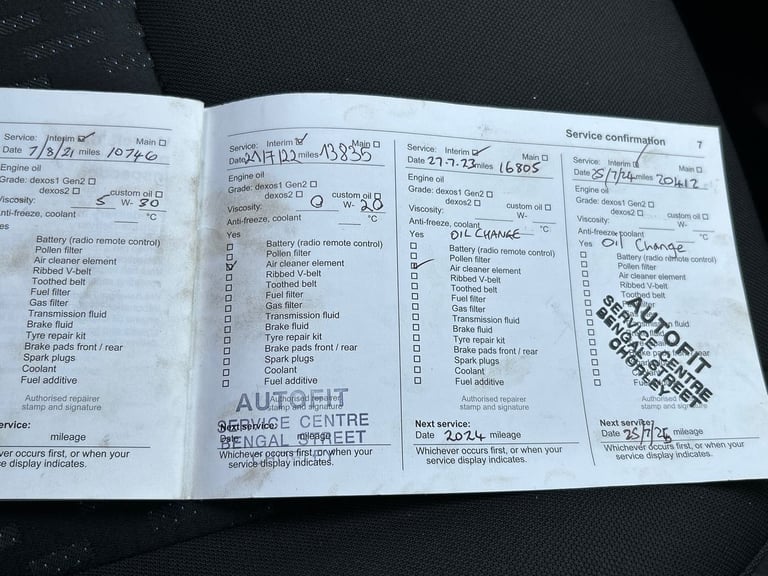 Service: Interim ☑ Main ☐
Date 7/8/21 miles 10746
Engine oil
Grade: dexos1 Gen2 ☐
dexos2 ☐ custom oil ☐
Viscosity: 5 W- 30
Anti-freeze, coolant °C
Battery (radio remote control)
Pollen filter
Air cleaner element
Ribbed V-belt
Toothed belt
Fuel filter
Gas filter
Transmission fluid
Brake fluid
Tyre repair kit
Brake pads front / rear
Spark plugs
Coolant
Fuel additive
Authorised repairer
stamp and signature
service:
mileage
ever occurs first, or when your
service display indicates.
Service: Interim ☑ Main ☐
Date 21/7/22 miles 13835
Engine oil
Grade: dexos1 Gen2 ☐
dexos2 ☐ custom oil ☐
Viscosity: 0 W- 20
Anti-freeze, coolant °C
Yes
☐ Battery (radio remote control)
☐ Pollen filter
☑ Air cleaner element
☐ Ribbed V-belt
☐ Toothed belt
☐ Fuel filter
☐ Gas filter
☐ Transmission fluid
☐ Brake fluid
☐ Tyre repair kit
☐ Brake pads front / rear
☐ Spark plugs
☐ Coolant
☐ Fuel additive
Authorised repairer
stamp and signature
AUTOFIT
SERVICE CENTRE
BENGAL STREET
Next service:
Date mileage
Whichever occurs first, or when your
service display indicates.
Service confirmation 7
Service: Interim ☑ Main ☐
Date 27.7.23 miles 16805
Engine oil
Grade: dexos1 Gen2 ☐
dexos2 ☐ custom oil ☐
Viscosity: W-
Anti-freeze, coolant °C
Yes OIL CHANGE
☐ Battery (radio remote control)
☐ Pollen filter
☑ Air cleaner element
☐ Ribbed V-belt
☐ Toothed belt
☐ Fuel filter
☐ Gas filter
☐ Transmission fluid
☐ Brake fluid
☐ Tyre repair kit
☐ Brake pads front / rear
☐ Spark plugs
☐ Coolant
☐ Fuel additive
Authorised repairer
stamp and signature
Next service:
Date 2024 mileage
Whichever occurs first, or when your
service display indicates.
Service: Interim ☑ Main ☐
Date 25/7/24 miles 20412
Engine oil
Grade: dexos1 Gen2 ☐
dexos2 ☐ custom oil ☐
Viscosity: W-
Anti-freeze, coolant °C
Yes Oil Change
☐ Battery (radio remote control)
☐ Pollen filter
☐ Air cleaner element
☐ Ribbed V-belt
☐ Toothed belt
AUTOFIT
SERVICE CENTRE
BENGAL STREET
CHORLEY
Authorised repairer
stamp and signature
Next service:
Date 25/7/25 mileage
Whichever occurs first, or when your
service display indicates.